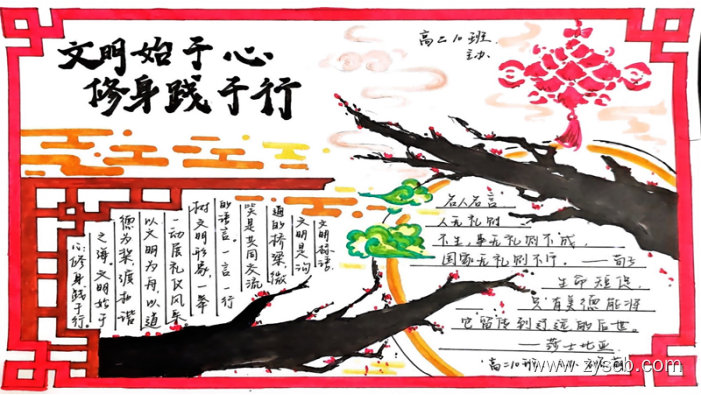 文明始于心
修身践于行
高二10班
主办
文明标语
文明是沟
通的桥梁微
笑是共同交流
的语言。一言一行
树文明形象,一举
一动展礼仪风采。
以文明为舟,以道
德为桨,渡和谐
之海文明始于
心修身践于行。
名人名言
人无礼则
不生,事无礼则不成,
国家无礼则不行。——荀子
生命短促,
只有美德能将
它留传到辽远的后世。
——莎士比亚
高二10班